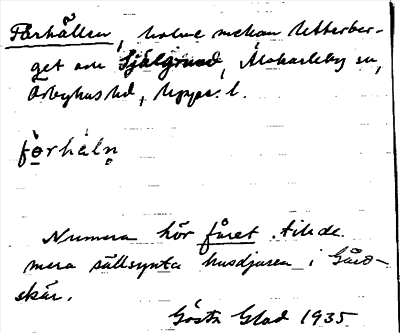 Fårhällen, holme mellan Utterber-
get och Själgrund, Älvkarleby sn,
Örbyhus hd, Upps. l.
fǫ̀rhèln̥
Numera hör fåret till de
mera sällsynta husdjuren i Gård-
skär.
Gösta Glad 1935